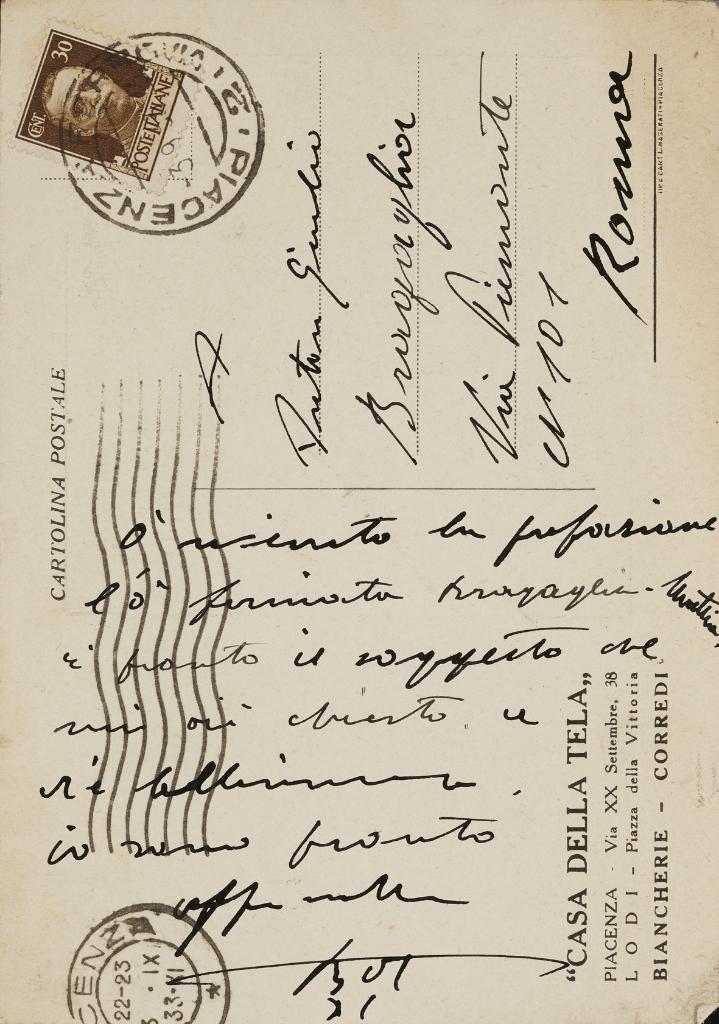 CARTOLINA POSTALE
30
CENT.
POSTE ITALIANE
PIACENZA
A
Anton Giulio
Bragaglia
Via Piemonte
N 101
Roma
ò ricevuto la prefazione
l'ò firmata Bragaglia-
è pronto il soggetto che
mi ài chiesto e
è
io sono pronto
PIACENZA
22-23
IX
33·XI
"CASA DELLA TELA„
PIACENZA - Via XX Settembre, 38
LODI - Piazza della Vittoria
BIANCHERIE - CORREDI